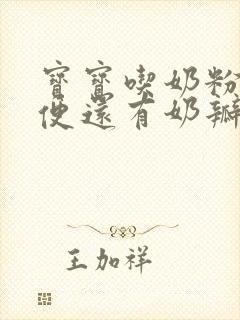 寶寶喫奶粉
便還有奶瓣
王加祥